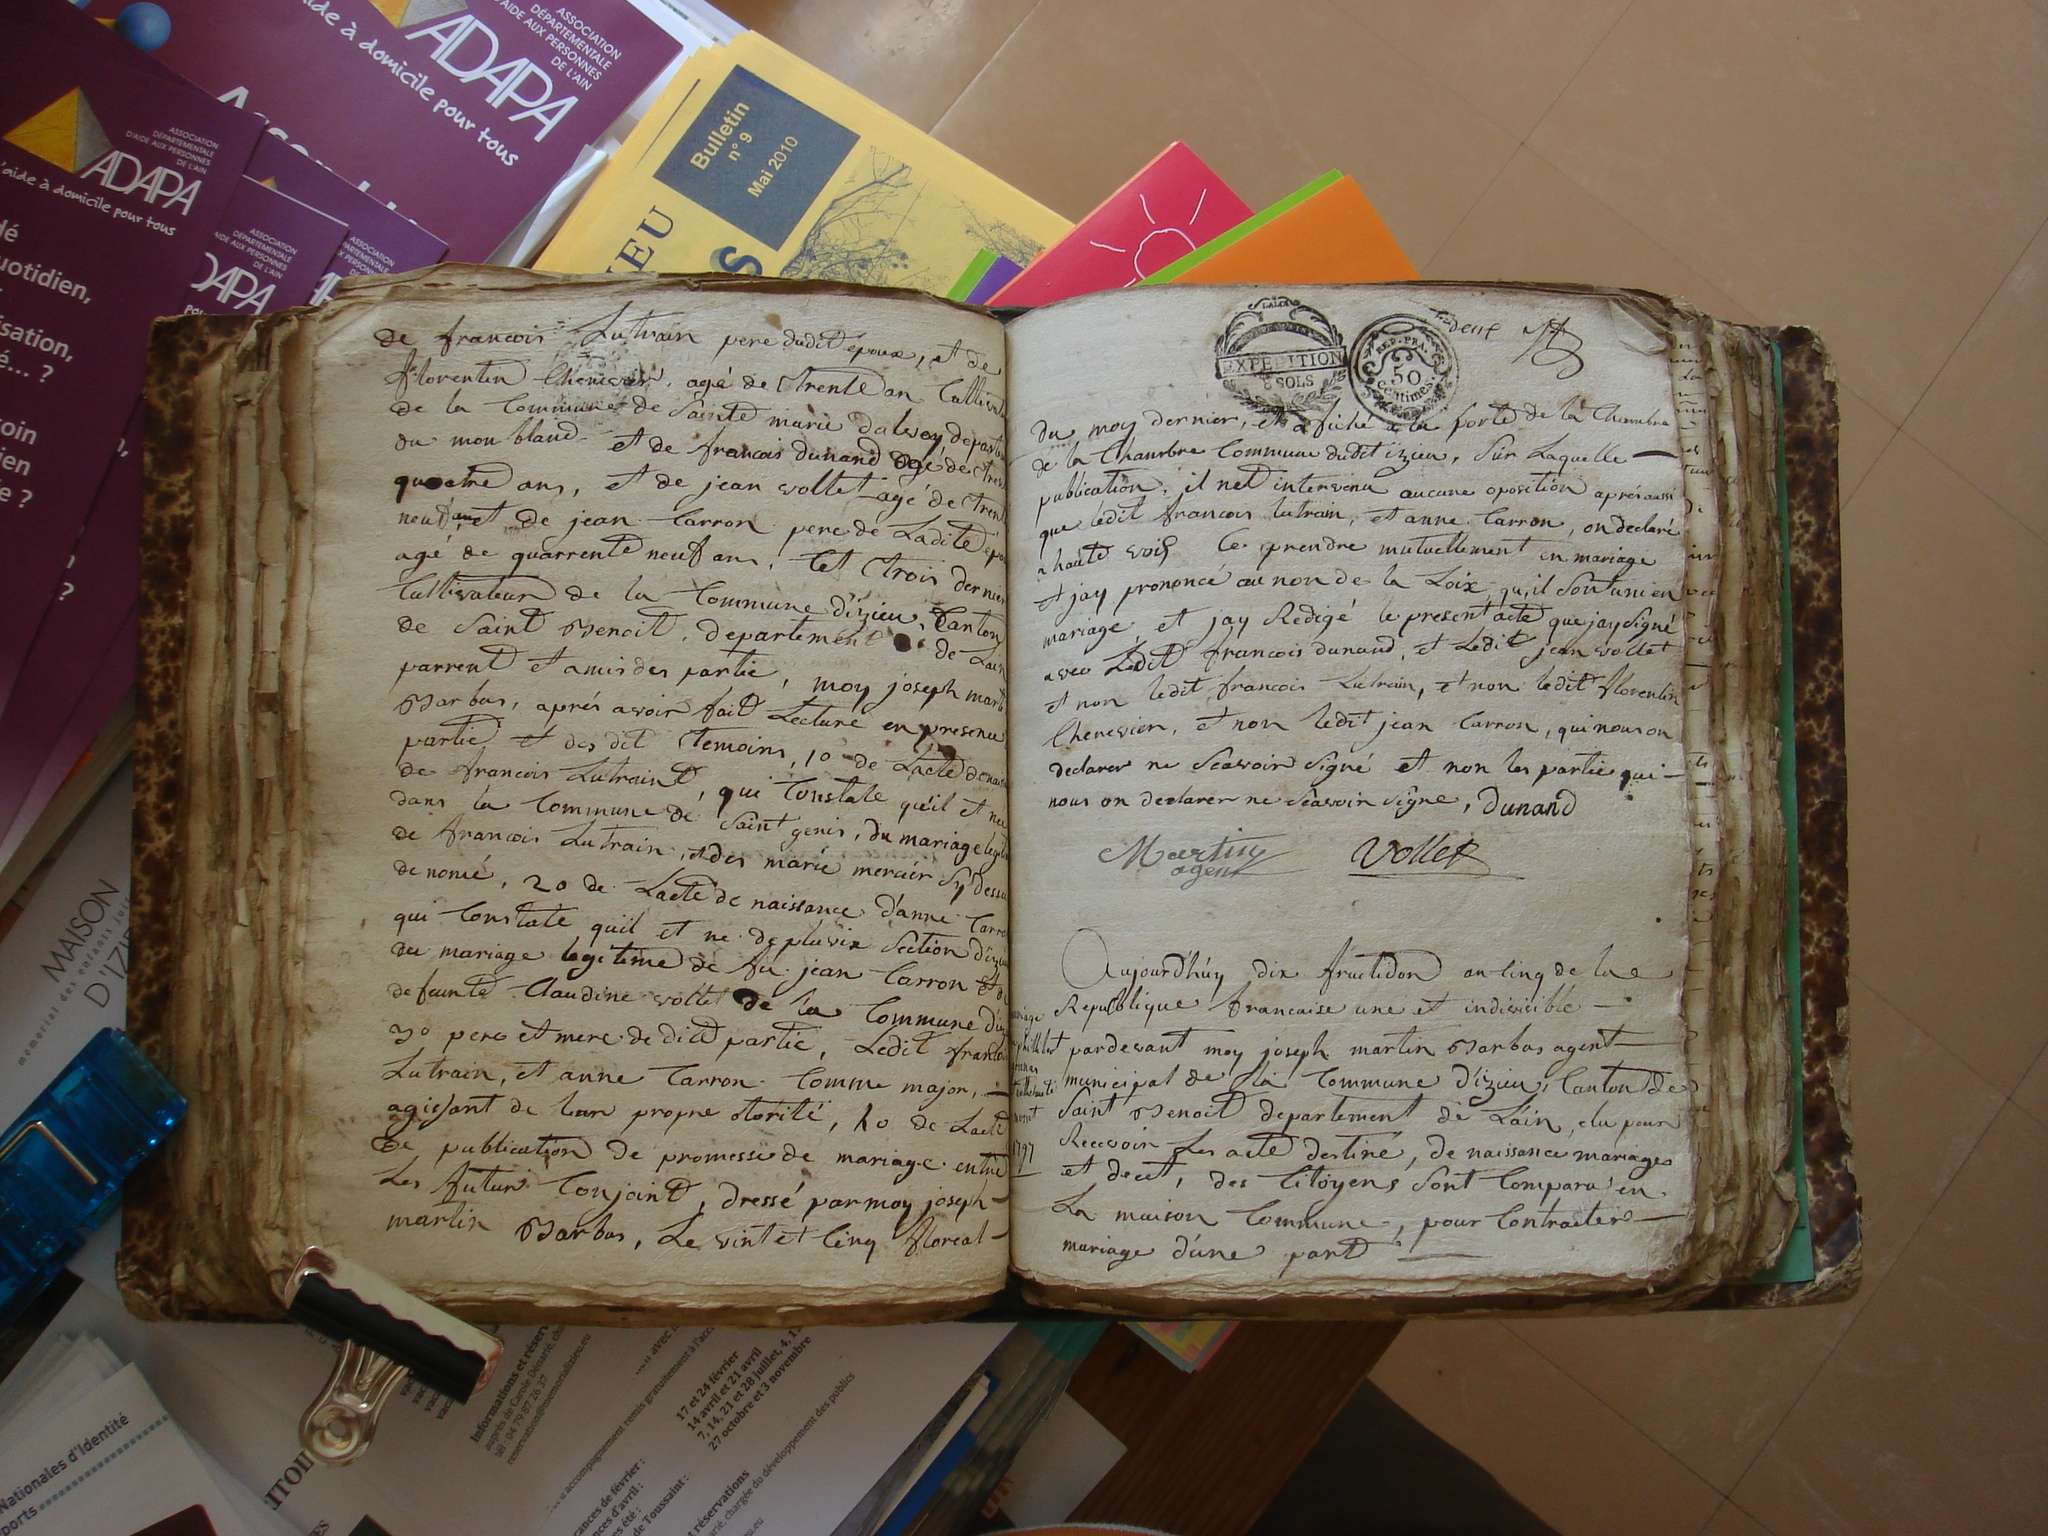 ASSOCIATION
DÉPARTEMENTALE
D'AIDE AUX PERSONNES
DE L'AIN
ADAPA
l'aide à domicile pour tous
ASSOCIATION
DÉPARTEMENTALE
D'AIDE AUX PERSONNES
DE L'AIN
ADAPA
l'aide à domicile pour tous
uotidien,
isation,
é... ?
oin
ien
ie ?
Bulletin
n° 9
Mai 2010
IEU
de francois Lutrain pere dudit époux, et de
florentin Chenevier, agé de trente an Cultivat
de la Commune de Sainte marie dalvey depart
du mon bland et de francois dunand agé de tren
quatre ans, et de jean vollet agé de tren
neuf ans et de jean Carron pere de Ladite épou
agé de quarrente neuf ans, Cet trois dernier
Cultivateur de la Commune d'izieu, Canton
de Saint Benoit, departement de Lain
parrent et amis des partie, moy joseph mart
Barbas, aprés avoir fait Lecture en presence
partie et des dit temoins, 10 de Lacte de nais
de francois Lutraint, qui Constate qu'il et nee
dans la Commune de Saint genis, du mariage legit
de francois Lutrain, et des marie mercier Sy dessu
de nomé, 20 de Lacte de naissance d'anne Carro
qui Constate quil et ne de pluvix Section d'izieu
du mariage legitime de feu jean Carron et de
defunte Claudine vollet de la Commune d'iz
30 pere et mere de dite partie, Ledit francois
Lutrain, et anne Carron Comme major,
agissant de leur propre otorité, 40 de Lacte
de publication de promesse de mariage entre
Les futur Conjoint, dressé par moy joseph
martin Barbas, Le vint et Cinq floreal
LA LOI
EXPEDITION
8 SOLS
REP. FRA.
50
Centimes
deux
du moy dernier, et afiché a la porte de la Chambre
de la Chambre Commune dudit izieu, Sur Laquelle
publication, il net intervenu aucune oposition aprés aussi
que ledit francois Lutrain, et anne Carron, on declaré
a haute voix Ce prendre mutuellement en mariage
et jay prononcé au non de la Loix, qu,il Sont uni en
mariage et jay Redigé le present acte que jay Signé
avec Ledit francois dunand, et Ledit jean vollet
et non ledit francois Lutrain, et non ledit florentin
Chenevier, et non ledit jean Carron, qui nous on
declarer ne Scavoir Signé et non les partie qui
nous on declarer ne Scavoir Signe, Dunand
Martin
agent
Vollet
Aujourd'huy dix fructidor an Cinq de la
Republique francaise une et indivisible
pardevant moy joseph martin Barbas agent
municipal de la Commune d'izieu, Canton de
Saint Benoit departement de Lain, elu pour
Recevoir Les acte destiné, de naissance mariages
et decet, des Citoyens Sont Comparu en
La maison Commune, pour Contracter
mariage d'une part
1797
MAISON
D'IZIEU
memorial des enfants juifs
Nationales d'Identité
Informations et réserv
auprès de Carole Dénarié, ch
tél : 04 79 87 26 37
reservation@memorializieu.eu
17 et 24 février
14 avril et 21 avril
7, 14, 21 et 28 juillet, 4, 1
27 octobre et 3 novembre
accompagnement remis gratuitement à l'acc
ances de février :
nces d'avril :
es été :
de Toussaint :
réservations
chargée du développement des publics